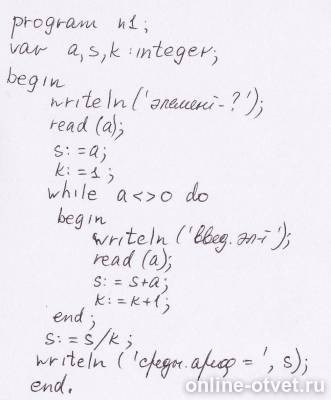 program n1;
var a,s,k:integer;
begin
writeln('элемент-?');
read(a);
s:=a;
k:=1;
while a<>0 do
begin
writeln('введ.эл-т');
read(a);
s:=s+a;
k:=k+1;
end;
s:=s/k;
writeln('средн.ариф=', s);
end.
online-otvet.ru